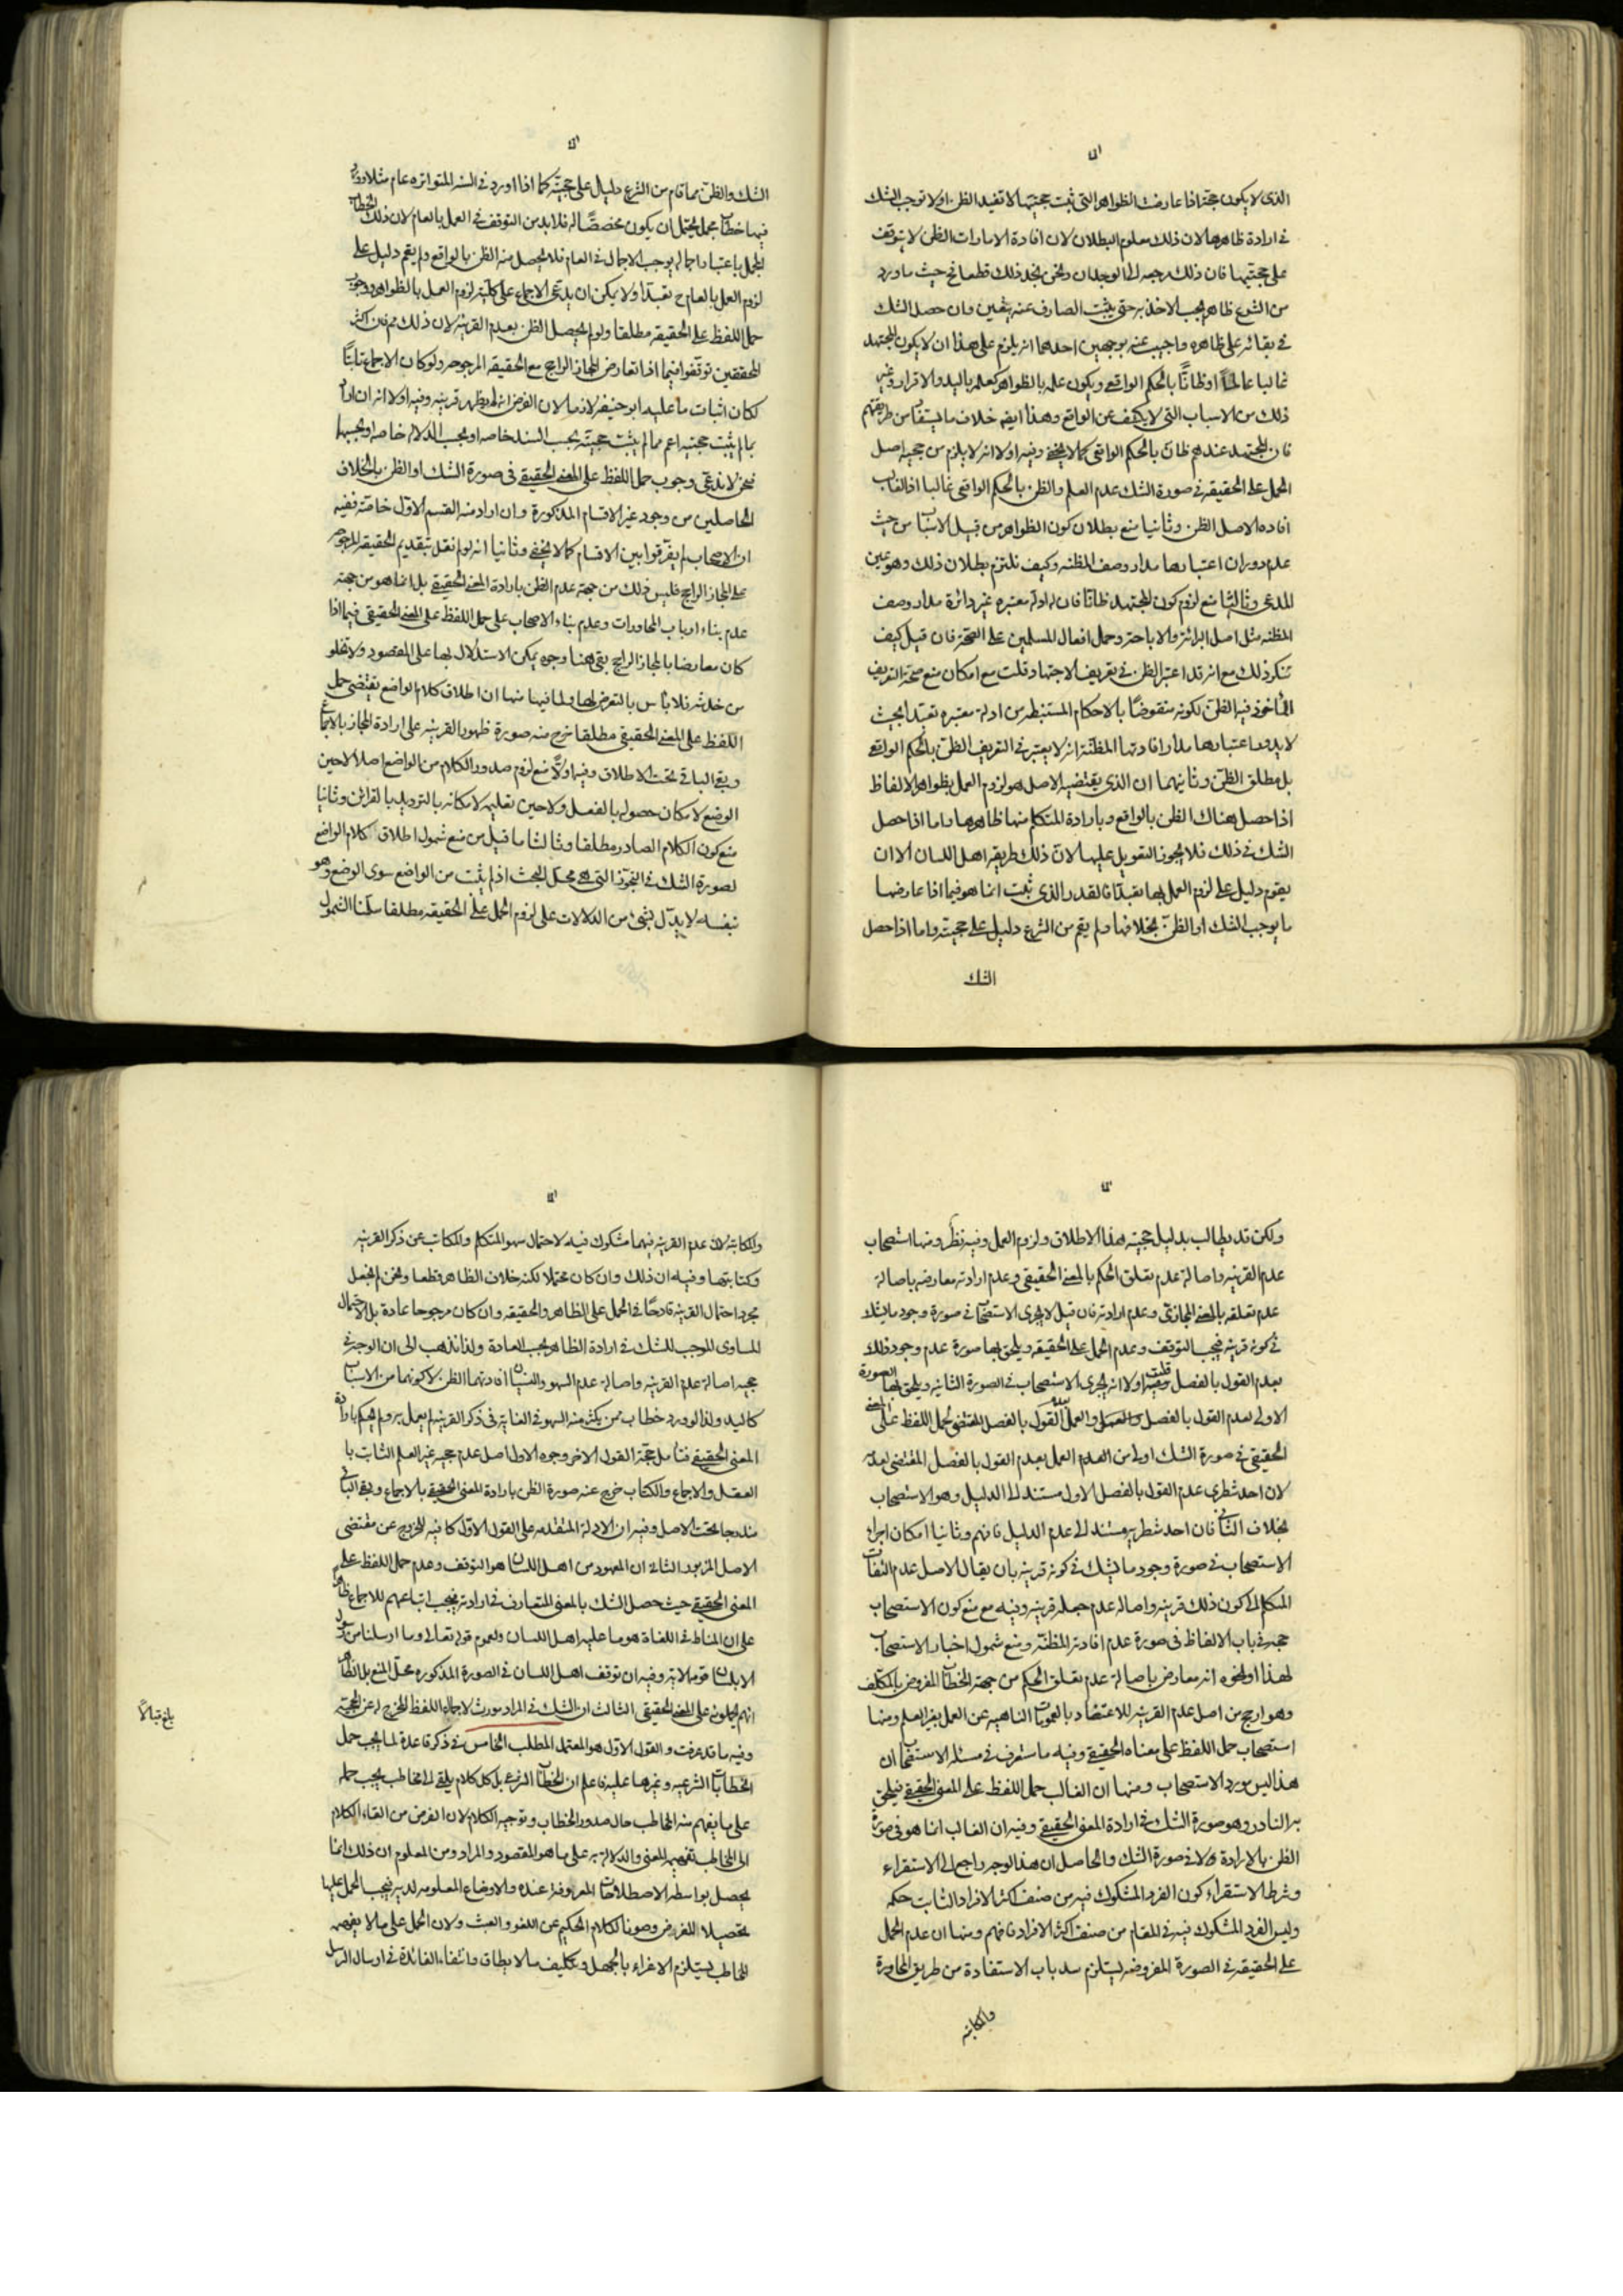 الذى لا يكون حجة اذا عارضت الظواهر التى ثبت حجيتها لا تفيد الظن او لا توجب الشك
فى ارادة ظاهرها لان ذلك معلوم البطلان لان افادة الامارات الظن لا يتوقف
على حجيتها فان ذلك مرجعه الى الوجدان ونحن نجد ذلك قطعا فى حيث ما ورد
من الشرع ظاهر يجب الاخذ به حتى يثبت الصارف عنه بيقين وان حصل الشك
فى بقائه على ظاهره واجيب عنه بوجهين احدهما انه يلزم على هذا ان لا يكون المجتهد
غالبا عالما او ظانّا بالحكم الواقعى ويكون علمه بالظواهر كعلمه باليد والاقرار وغير
ذلك من الاسباب التى لا يكشف عن الواقع وهذا ايضا خلاف ما يستفاد من طريقتهم
فان المجتهد عندهم ظان بالحكم الواقعى كما لا يخفى وفيه اولا انه لا يلزم من حجية اصل
الحمل على الحقيقه فى صورة الشك عدم العلم والظن بالحكم الواقعى غالبا اذ الغالب
افاده الاصل الظن وثانيا منع بطلان كون الظواهر من قبيل الاسباب من حيث
عدم دوران اعتبارها مدار وصف المظنه وكيف نلتزم بطلان ذلك وهو عين
المدعى وثالثا منع لزوم كون المجتهد ظانّا فان له ادلة معتبره غير دائرة مدار وصف
المظنه مثل اصل البرائة والاباحة وحمل افعال المسلمين على الصحة فان قيل كيف
تنكر ذلك مع انه قد اعتبر الظن فى تعريف الاجتهاد قلت مع امكان منع صحة التعريف
المأخوذ فيه الظن لكونه منقوضا بالاحكام المستنبطه من ادلة معتبره تعبدا بحيث
لا يدور اعتبارها مدار افادتها المظنة انه لا يعتبر فى التعريف الظن بالحكم الواقعى
بل مطلق الظن وثانيهما ان الذى يقتضيه الاصل هو لزوم العمل بظواهر الالفاظ
اذا حصل هناك الظن بالواقع وبارادة المتكلم منها ظاهرها واما اذا حصل
الشك فى ذلك فلا يجوز التعويل عليها لان ذلك طريقة اهل اللسان الا ان
يقوم دليل على لزوم العمل بها تعبدا فالقدر الذى ثبت انما هو فيما اذا عارضها
ما يوجب الشك او الظن بخلافها ولم يقم من الشرع دليل على حجيته واما اذا حصل
الشك
الشك والظن مما قام من الشرع دليل على حجيته كما اذا ورد فى السنه المتواتره عام مثلا وورد
فيها خطاب مجمل يحتمل ان يكون مخصصا له فلا بد من التوقف فى العمل بالعام لان ذلك الخطاب
المجمل باعتبار اجماله يوجب الاجمال فى العام فلا يحصل منه الظن بالواقع ولم يقم دليل على
لزوم العمل بالعام ح تعبدا ولا يمكن ان يدعى الاجماع على كلية لزوم العمل بالظواهر ووجوب
حمل اللفظ على الحقيقه مطلقا ولو لم يحصل الظن بعدم القرينه لان ذلك مم فان اكثر
المحققين توقفوا فيما اذا تعارض المجاز الراجح مع الحقيقه المرجوحه ولو كان الاجماع ثابتا
لكان اثبات ما عليه ابو حنيفه لازما لان الفرض انه لم يظهر قرينه وفيه اولا انه ان اراد
بما لم يثبت حجيته اعم مما لم يثبت حجيته بحسب السند خاصه او بحسب الدلالة خاصه او بحسبهما
فنحن لا ندعى وجوب حمل اللفظ على المعنى الحقيقى فى صورة الشك او الظن بالخلاف
الحاصلين من وجود غير الاقسام المذكورة وان اراد منه القسم الاول خاصة ففيه
ان الاصحاب لم يفرقوا بين الاقسام كما لا يخفى وثانيا انه لو لم نقل بتقديم الحقيقه المرجوحه
على المجاز الراجح فليس ذلك من جهة عدم الظن بارادة المعنى الحقيقى بل انما هو من جهة
عدم بناء ارباب المحاورات وعدم بناء الاصحاب على حمل اللفظ على المعنى الحقيقى فيما اذا
كان معارضا بالمجاز الراجح بقى هنا وجوه يمكن الاستدلال بها على المقصود ولا تخلو
من خدشه فلا بأس بالتعرض لها ولما فيها منها ان اطلاق كلام الواضع يقتضى حمل
اللفظ على المعنى الحقيقى مطلقا خرج منه صورة ظهور القرينه على ارادة المجاز بالاجماع
وبقى الباقى تحت الاطلاق وفيه اولا منع لزوم صدور الكلام من الواضع اصلا لا حين
الوضع لامكان حصوله بالفعل ولا حين تعليمه لامكانه بالترديد بالقرائن وثانيا
منع كون الكلام الصادر مطلقا وثالثا ما قيل من منع شمول اطلاق كلام الواضع
لصورة الشك فى التجوز التى هى محل البحث اذ لم يثبت من الواضع سوى الوضع وهو
بنفسه لا يدل بشئ من الدلالات على لزوم الحمل على الحقيقه مطلقا سلمنا الشمول
ولكن قد يطالب بدليل حجية هذا الاطلاق ولزوم العمل وفيه نظر ومنها استصحاب
عدم القرينه واصالة عدم تعلق الحكم بالمعنى الحقيقى وعدم ارادته معارضه باصالة
عدم تعلقه بالمعنى المجازى وعدم ارادته فان قيل لا يجرى الاستصحاب فى صورة وجود ما يشك
فى كونه قرينه فيجب التوقف وعدم الحمل على الحقيقه ويلحق بها صورة عدم وجود ذلك
بعدم القول بالفصل قلت فيه اولا انه يجرى الاستصحاب فى الصورة الثانيه ويلحق بها الصورة
الاولى لعدم القول بالفصل والعمل بعدم القول بالفصل المقتضى لحمل اللفظ على المعنى
الحقيقى فى صورة الشك اولى من العدم العمل بعدم القول بالفصل المقتضى لعدمه
لان احد شطرى عدم القول بالفصل الاول مستند الى الدليل وهو الاستصحاب
بخلاف الثانى فان احد شطريه مستند الى عدم الدليل فافهم وثانيا امكان اجراء
الاستصحاب فى صورة وجود ما يشك فى كونه قرينه بان يقال الاصل عدم التفات
المتكلم الى كون ذلك قرينه واصالة عدم جعله قرينه وفيه مع منع كون الاستصحاب
حجة فى باب الالفاظ فى صورة عدم افادته المظنة ومنع شمول اخبار الاستصحاب
لهذا او نحوه انه معارض باصالة عدم تعلق الحكم من جهة الخطاب المفروض بالمكلف
وهو ارجح من اصل عدم القرينه للاعتضاد بالعمومات الناهيه عن العمل بغير العلم ومنها
استصحاب حمل اللفظ على معناه الحقيقى وفيه ما ستعرف فى مسئله الاستصحاب ان
هذا ليس مورد الاستصحاب ومنها ان الغالب حمل اللفظ على المعنى الحقيقى فيلحق
به النادر وهو صورة الشك فى ارادة المعنى الحقيقى وفيه ان الغالب انما هو فى صورة
الظن بالارادة ولا فى صورة الشك والحاصل ان هذا الوجه راجع الى الاستقراء
وشرط الاستقراء كون الفرد المشكوك فيه من صنف اكثر الافراد الثابت حكمه
وليس الفرد المشكوك فيه فى المقام من صنف اكثر الافراد فافهم ومنها ان عدم الحمل
على الحقيقه فى الصورة المفروضه يستلزم سد باب الاستفادة من طريق المحاورة
والمكاتبه
والمكاتبه لان عدم القرينه فيهما مشكوك فيه لاحتمال سهو المتكلم والمكاتب عن ذكر القرينه
وكتابتها وفيه ان ذلك وان كان محتملا لكنه خلاف الظاهر قطعا ونحن لم نجعل
مجرد احتمال القرينه قادحا فى الحمل على الظاهر والحقيقه وان كان مرجوحا عادة بل الاحتمال
المساوى الموجب للشك فى ارادة الظاهر بحسب العادة ولذا نذهب الى ان الوجه فى
حجية اصالة عدم القرينه واصالة عدم السهو والنسيان افادتهما الظن لا كونهما من الاسباب
كاليد ولذا لو ورد خطاب ممن يكثر منه السهو فى الغاية فى ذكر القرينه لم يعمل به ولم يحكم بارادة
المعنى الحقيقى فتأمل حجة القول الاخر وجوه الاول اصل عدم حجية غير العلم الثابت با
العقل والاجماع والكتاب خرج عنه صورة الظن بارادة المعنى الحقيقى بالاجماع وبقى الباقى
مندرجا تحت الاصل وفيه ان الادلة المتقدمه على القول الاول كافيه للخروج عن مقتضى
الاصل المزبور الثانى ان المعهود من اهل اللسان هو التوقف وعدم حمل اللفظ على
المعنى الحقيقى حيث حصل الشك بالمعنى المتعارف فى ارادته فيجب اتباعهم للاجماع ظاهرا
على ان المناط فى اللغات هو ما عليه اهل اللسان ولعموم قوله تعالى وما ارسلنا من رسول
الا بلسان قومه الاية وفيه ان توقف اهل اللسان فى الصورة المذكوره محل المنع بل الظاهر
انهم يحملونه على المعنى الحقيقى الثالث ان الشك فى المراد مورث لاجمال اللفظ المخرج له عن الحجية
وفيه ما قد عرفت والقول الاول هو المعتمد المطلب الخامس فى ذكر قاعدة لما يجب حمل
الخطابات الشرعيه وغيرها عليه فاعلم ان الخطاب الشرعى بل كل كلام يلقى الى مخاطب يجب حمله
على ما يفهم منه المخاطب حال صدور الخطاب وتوجيه الكلام لان الغرض من القاء الكلام
الى المخاطب تفهيمه المعنى والدلالة به على ما هو المقصود والمراد ومن المعلوم ان ذلك انما
يحصل بواسطة الاصطلاحات المعروفة عنده والاوضاع المعلومه لديه فيجب الحمل عليها
تحصيلا للغرض وصونا لكلام الحكيم عن اللغو والعبث ولان الحمل على ما لا يفهمه
المخاطب يستلزم الاغراء بالجهل وتكليف ما لا يطاق وانتفاء الفائدة فى ارسال الرسل
بلغ قبالا